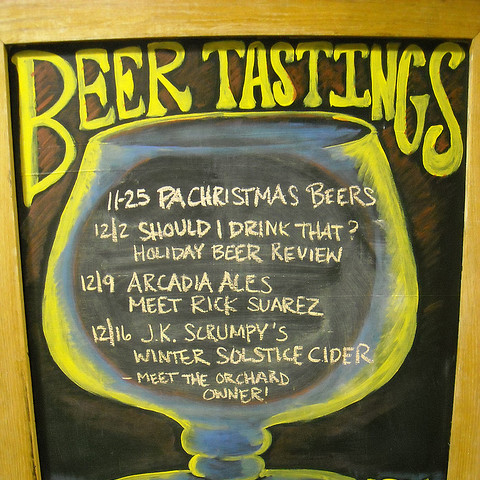 BEER TASTINGS
11-25 PA CHRISTMAS BEERS
12/2 SHOULD I DRINK THAT?
HOLIDAY BEER REVIEW
12/9 ARCADIA ALES
MEET RICK SUAREZ
12/16 J.K. SCRUMPY'S
WINTER SOLSTICE CIDER
- MEET THE ORCHARD
OWNER!